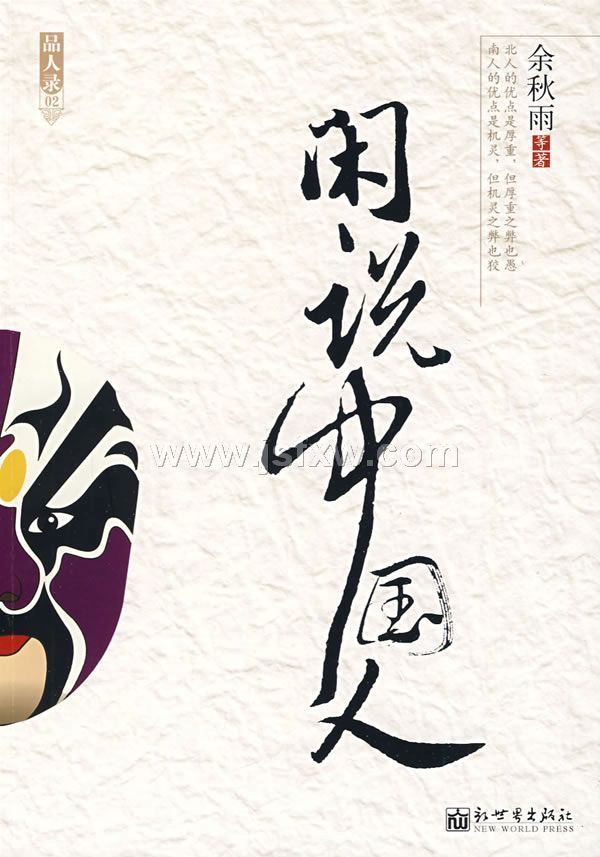 品人录
02
余秋雨
等著
北人的优点是厚重，但厚重之弊也愚、
南人的优点是机灵，但机灵之弊也狡
闲说中国人
www.jsfxw.com
新世界出版社
NEW WORLD PRESS